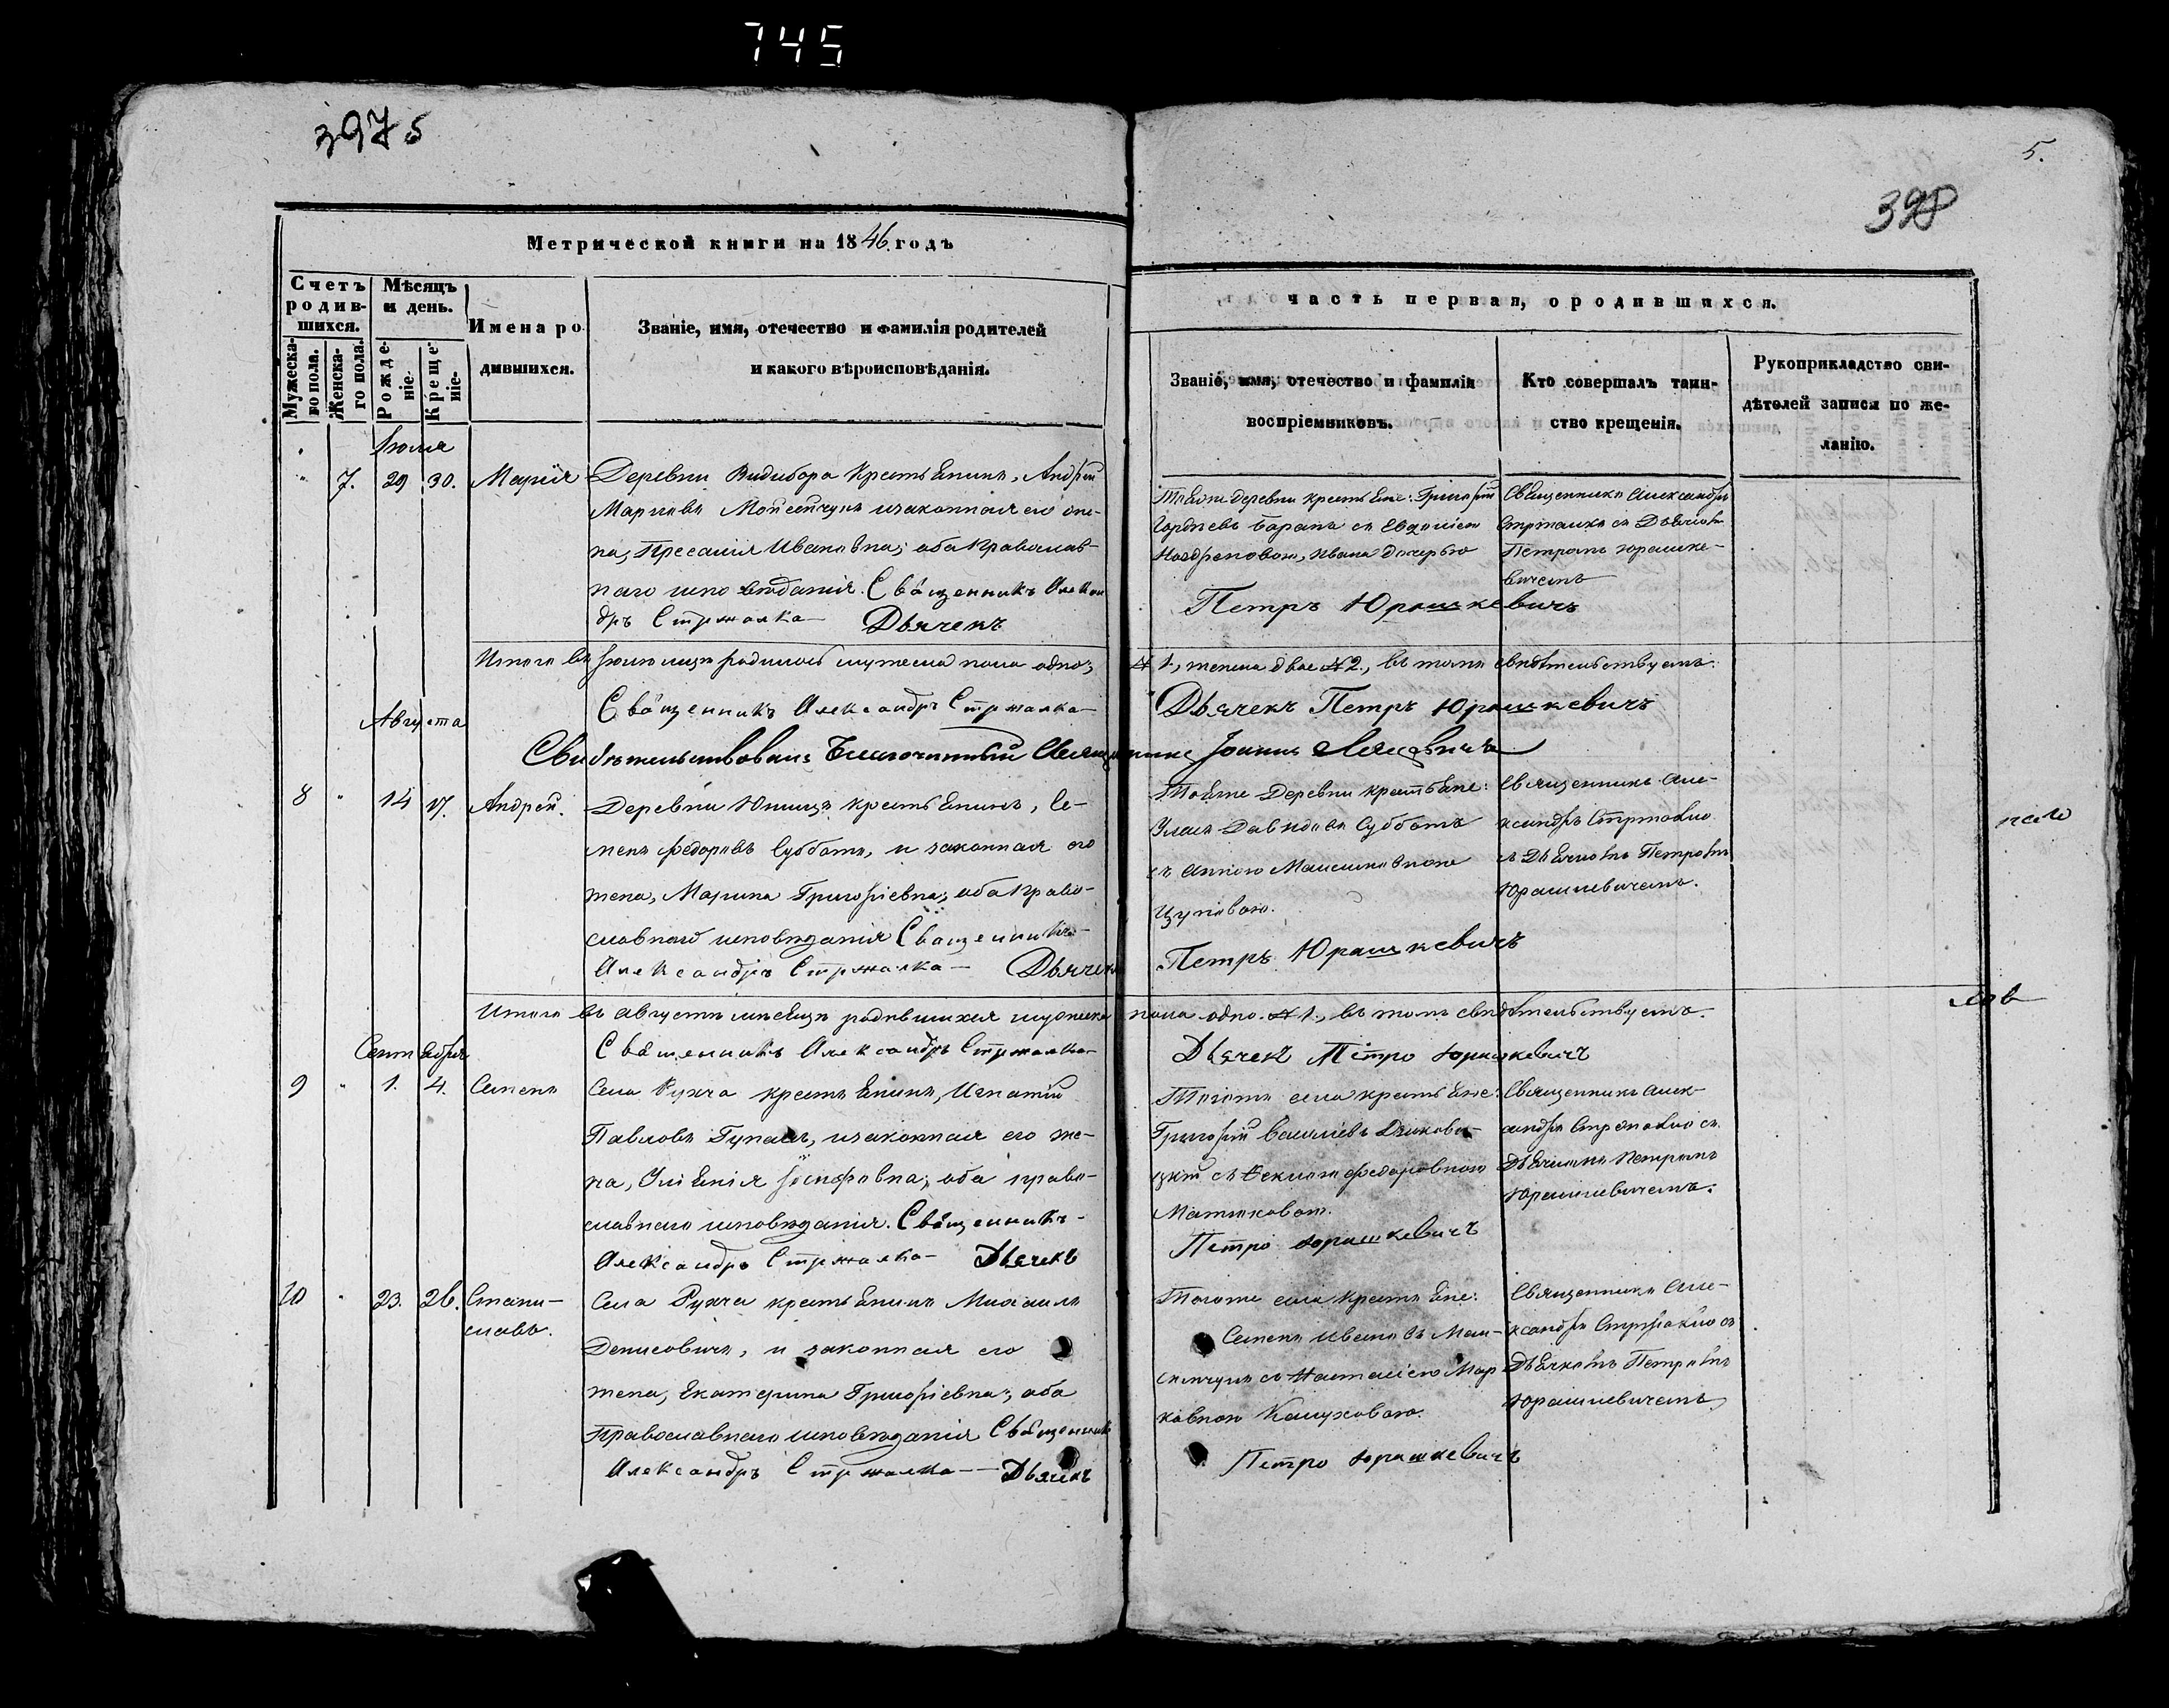 745
3975
5.
398
Метрической книги на 1846. годъ
часть первая, о родившихся.
Счетъ родив-
шихся.
Мужеска-
го пола.
Женска-
го пола.
Мѣсяцъ
и день.
Рожде-
ніе.
Креще-
ніе.
Имена ро
дившихся.
Званіе, имя, отечество и фамилія родителей
и какого вѣроисповѣданія.
Званіе, имя, отечество и фамилія
воспріемниковъ.
Кто совершалъ таин-
ство крещенія.
Рукоприкладство сви-
дѣтелей записи по же-
ланію.
Іюля
7. 29 30. Марія
Деревни Видибора крестьянинъ, Андрей
Марковъ и законная его же-
на, Иванова; оба православ-
наго исповѣданія. Священникъ Алексан
дръ Стржалка Дьячекъ
Тойже деревни крестьяне: Григорій
Гордѣевъ Баранъ съ Евдокіею
Ивана дочерью
Священникъ Александръ
Стржалка съ Дьячкомъ
Петромъ Юрашке-
вичемъ
Петръ Юрашкевичъ
Итого въ Іюлѣ родилось мужеска пола одно;
№ 1., женска двое № 2., въ томъ свидѣтельствуемъ:
Священникъ Александръ Стржалка
Дьячекъ Петръ Юрашкевичъ
Свидѣтельствовалъ Благочинный Священникъ Іоаннъ
Августа
8 " 14 17. Андрей.
Деревни крестьянинъ, Се-
менъ Федоровъ Суббота, и законная его
жена, Марина Григоріевна; оба право-
славнаго исповѣданія Священникъ
Александръ Стржалка — Дьячекъ
Тойже Деревни крестьяне:
Давидовъ Суббота
съ Анною Максимовною
Цуповою.
Священникъ Але-
ксандръ Стржалка
съ Дьячкомъ Петромъ
Юрашкевичемъ.
Петръ Юрашкевичъ
Итого въ августѣ мѣсяцѣ родившихся мужеска
пола одно. № 1., въ томъ свидѣтельствуемъ.
Священникъ Александръ Стржалка
Дьячекъ Петро Юрашкевичъ
Сентября
9 " 1. 4. Семенъ
Села Рухча крестьянинъ, Игнатій
Павловъ и законная его же-
на, Уліянія Іосифовна; оба право-
славнаго исповѣданія. Священникъ
Александръ Стржалка — Дьячекъ
Тогоже села крестьяне:
Григорій Васильевъ
съ Ѳеклою Федоровною
Священникъ Алек-
сандръ Стржалка съ
Дьячкомъ Петромъ
Юрашкевичемъ.
Петро Юрашкевичъ
10 " 23. 26. Стани-
славъ.
Села Рухча крестьянинъ Михаилъ
Денисовичъ, и законная его
жена, Екатерина Григоріевна; оба
православнаго исповѣданія Священникъ
Александръ Стржалка — Дьячекъ
Тогоже села крестьяне:
Семенъ Ивановъ
съ Настасіею Мар
ковною
Священникъ Але-
ксандръ Стржалка съ
Дьячкомъ Петромъ
Юрашкевичемъ
Петро Юрашкевичъ